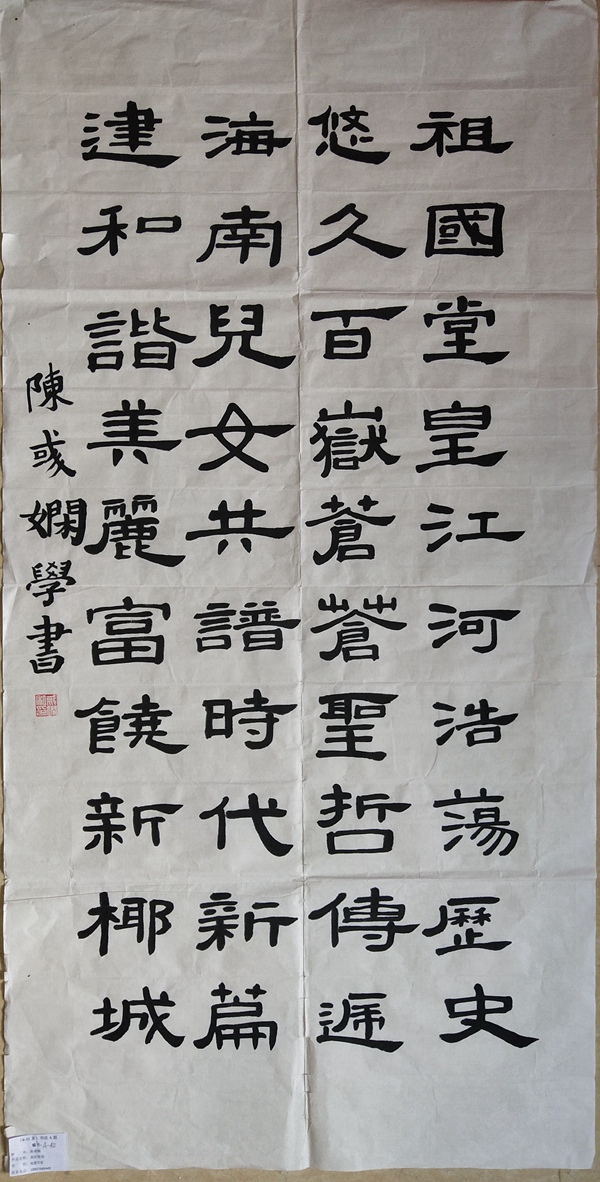 祖國堂皇江河浩蕩歷史
悠久百嶽蒼蒼聖哲傳遞
海南兒女共譜時代新篇
建和諧美麗富饒新椰城
陳彧嫻學書